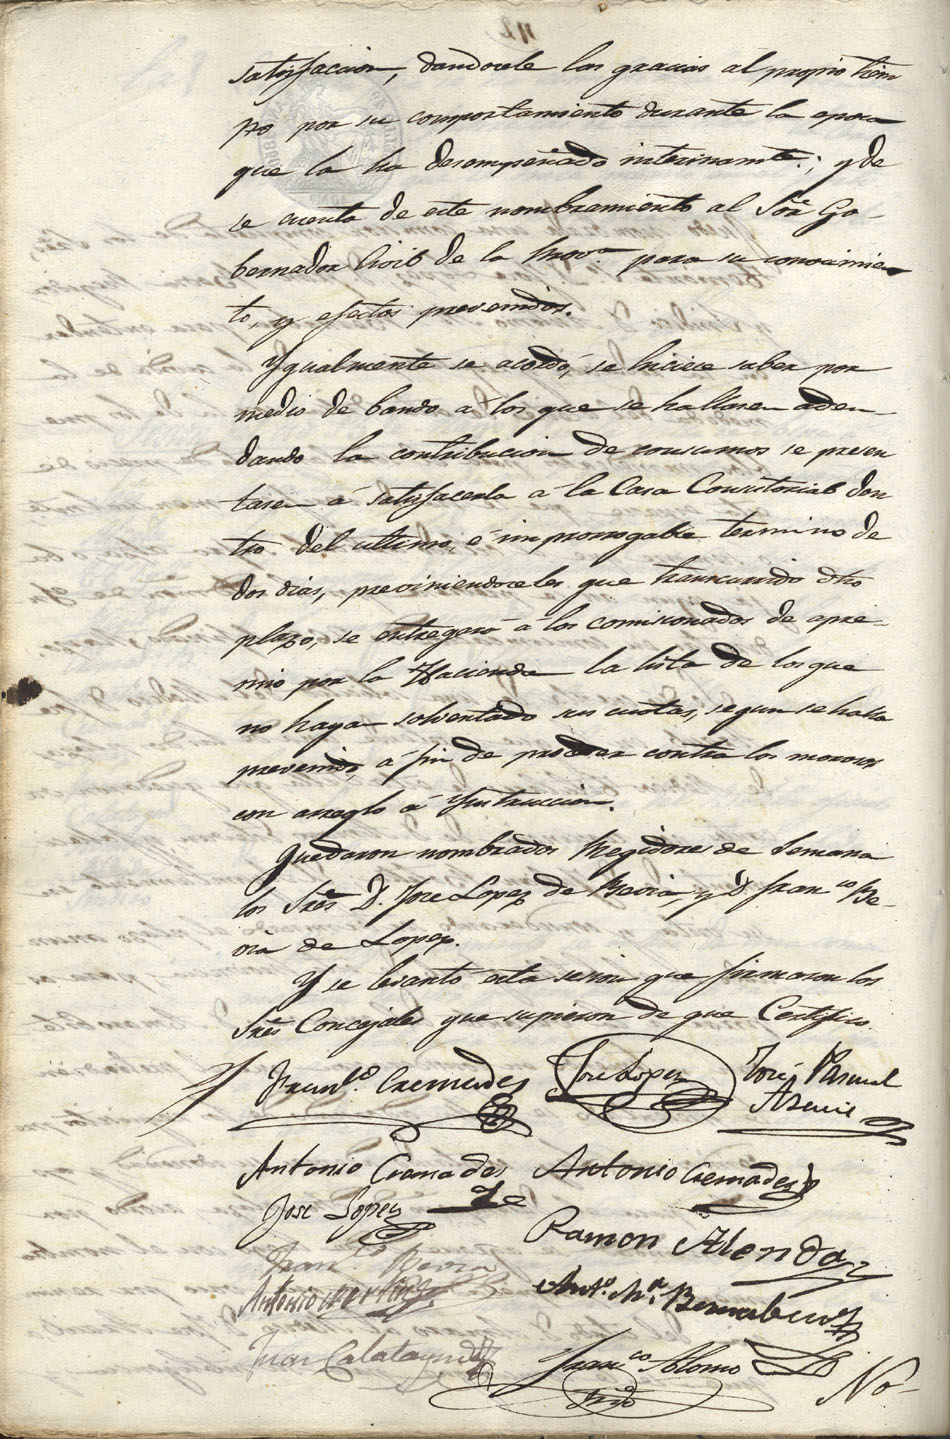 satisfaccion, dandosele las gracias al propio tiem
po por su comportamiento durante la epoca
que la ha desempeñado interinamte.; y de
se cuenta de este nombramiento al Sor. Go-
bernador Civil de la Prova. para su conocimien
to, y efectos prevenidos.
Ygualmente se acordó, se hiciese saber por
medio de bando a los que se hallasen aden-
dando la contribucion de consumos se presen
tasen á satisfacerla á la Casa Consistorial den
tro del ultimo, é improrrogable termino de
dos dias, previniendoseles que transcurrido dho
plazo, se entregará á los comisionados de apre-
mio por la Hacienda la lista de los que
no hayan solventado sus cuotas, segun se halla
prevenido, á fin de proceder contra los morosos
con arreglo á Ynstruccion.
Quedaron nombrados Regidores de Semana
los Sres. D. Jose Lopez de Beviá, y D. Franco. Be-
viá de Lopez.
Y se levantó esta sesion que firmaron los
Sres. Concejales que supieron de que Certifico.
Cremades Jose Lopez José Pascual
Asensi
Antonio Cremades Antonio Cremades
Jose Lopez
Ramon Alenda
Franco. Bevia
Antonio Anto. Ma. Bernabeu
Juan Calatayud Franco. Alomo
Srio
No-